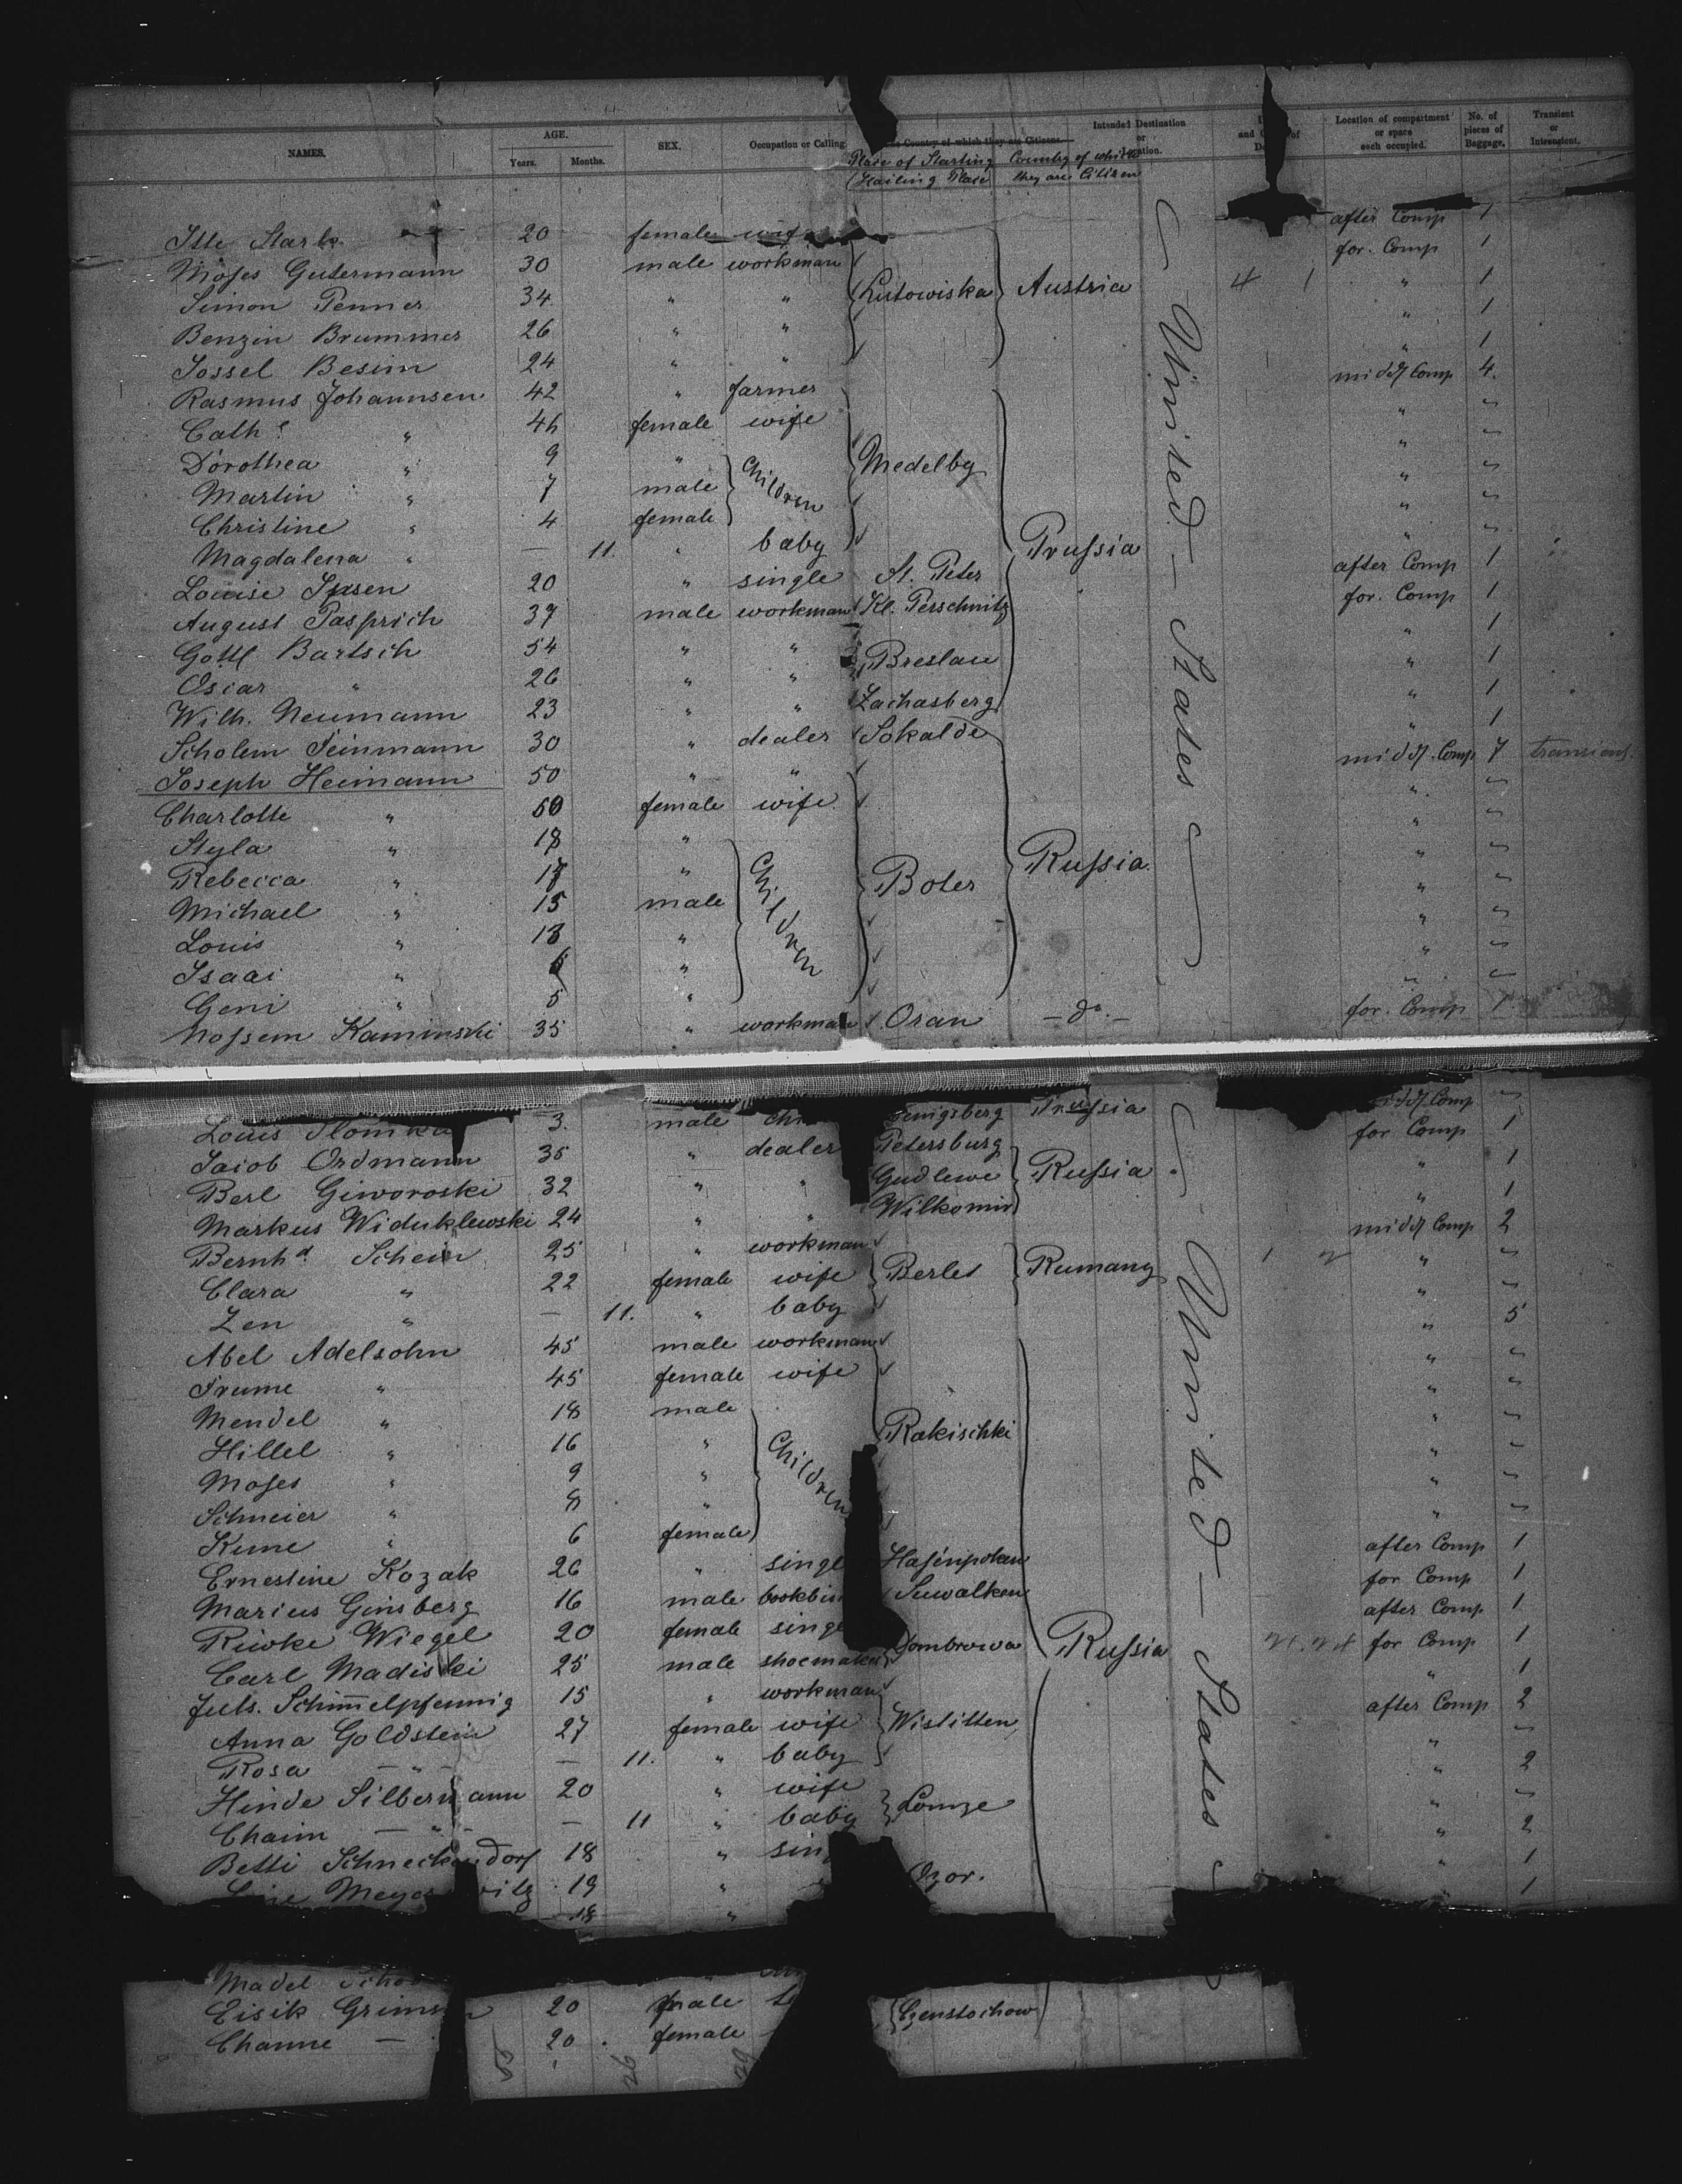 NAMES. AGE. Years. Months. SEX. Occupation or Calling. Country of which they are Citizens Intended Destination or Location. Location of compartment or space each occupied. No. of pieces of Baggage. Transient or Intransient.
Place of Starting Country of which
they are Citizen
Itte Stark 20 female wife after Comp 1
Moses Gutermann 30 male workman for. Comp 1
Simon Penner 34 " " Lutowiska Austria 4 1 " 1
Benzin Brummer 26 " " " 1
Jossel Besim 24 " " " 1
Rasmus Johannsen 42 " farmer midd Comp 4
Cath. " 46 female wife " "
Dorothea " 9 " Children Medelby " "
Martin " 7 male " "
Christine " 4 female " "
Magdalena " — 11. " baby Prussia " "
Louise 20 " single St. Peter after Comp 1
August Pasprich 37 male workman Kl. Perschnitz for. Comp 1
Gottl Bartsch 54 " " Breslau " 1
Oscar " 26 " " " 1
Wilh. Neumann 23 " " Zachasberg " 1
Scholem Feinmann 30 " dealer Sokalde " 1
Joseph Heimann 50 " " midd. Comp 7 transient.
Charlotte " 50 female wife " "
Styla " 18 " " "
Rebecca " 17 " Children Boter Russia " "
Michael " 15 male " "
Louis " 13 " " "
Isaac " " " "
Geni " 5 " " "
Mossem Kaminski 35 " workman Oran — do. — for. Comp 1
Louis 3. male Prussia midd Comp "
Jacob Ordmann 35 " dealer Petersburg for Comp 1
Berl Giworoski 32 " " Gudlewe Russia " 1
Markus Widuklewski 24 " " Wilkomir " 1
Bernhd. Schein 25 " workman midd Comp 2
Clara " 22 female wife Berlet Rumany " "
Zen " — 11. " baby " "
Abel Adelsohn 45 male workman " 5
Frume " 45 female wife " "
Mendel " 18 male " "
Hillel " 16 " Children Rakischki " "
Moses " 9 " " "
Schneier " 8 " " "
Kune " 6 female " "
Ernestine Kozak 26 " after Comp 1
Marius Ginsberg 16 male Suwalken for Comp 1
Riwke Wiegel 20 female after Comp 1
Carl Madiski 25 male shoemaker Dombrowa Russia for Comp 1
Juls. Schimmelpfennig 15 " workman " 1
Anna Goldstein 27 female wife Wistitten after Comp 2
Rosa — " — — 11. " baby " "
Hinde Silbermann 20 " wife Lomze " 2
Chaim — " — — 11 " baby " "
Betti Schneckendorf 18 " " 2
19 " " 1
18 " " 1
United States
United States
Madel
Eisik 20 male Czenstochow
Channe — 20 female